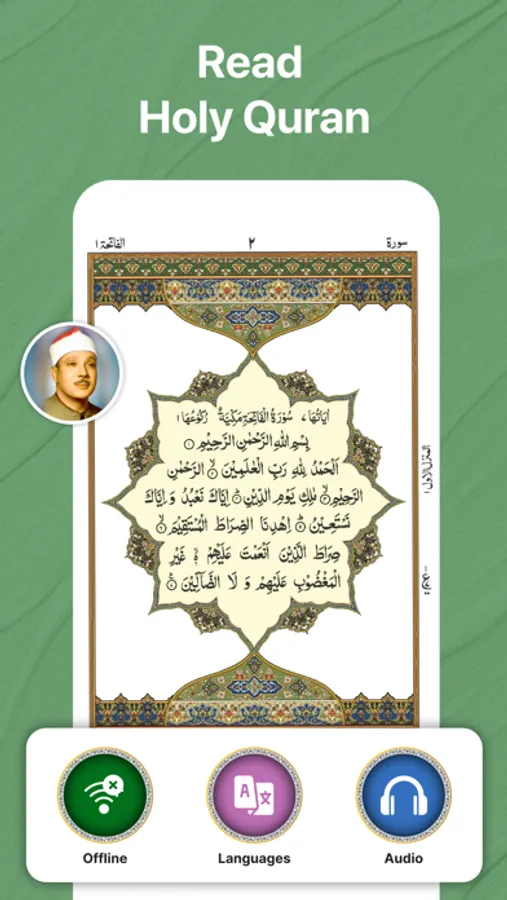 Read
Holy Quran
سورة ٢ الفاتحة ١
اٰيَاتُهَا ٧ سُوْرَةُ الْفَاتِحَةِ مَكِّيَّةٌ رُكُوْعُهَا ١
بِسْمِ اللّٰهِ الرَّحْمٰنِ الرَّحِيْمِ
اَلْحَمْدُ لِلّٰهِ رَبِّ الْعٰلَمِيْنَ الرَّحْمٰنِ
الرَّحِيْمِ مٰلِكِ يَوْمِ الدِّيْنِ اِيَّاكَ نَعْبُدُ وَ اِيَّاكَ
نَسْتَعِيْنُ اِهْدِنَا الصِّرَاطَ الْمُسْتَقِيْمَ
صِرَاطَ الَّذِيْنَ اَنْعَمْتَ عَلَيْهِمْ غَيْرِ
الْمَغْضُوْبِ عَلَيْهِمْ وَ لَا الضَّآلِّيْنَ
المنزل الاول ١
Offline
Languages
Audio